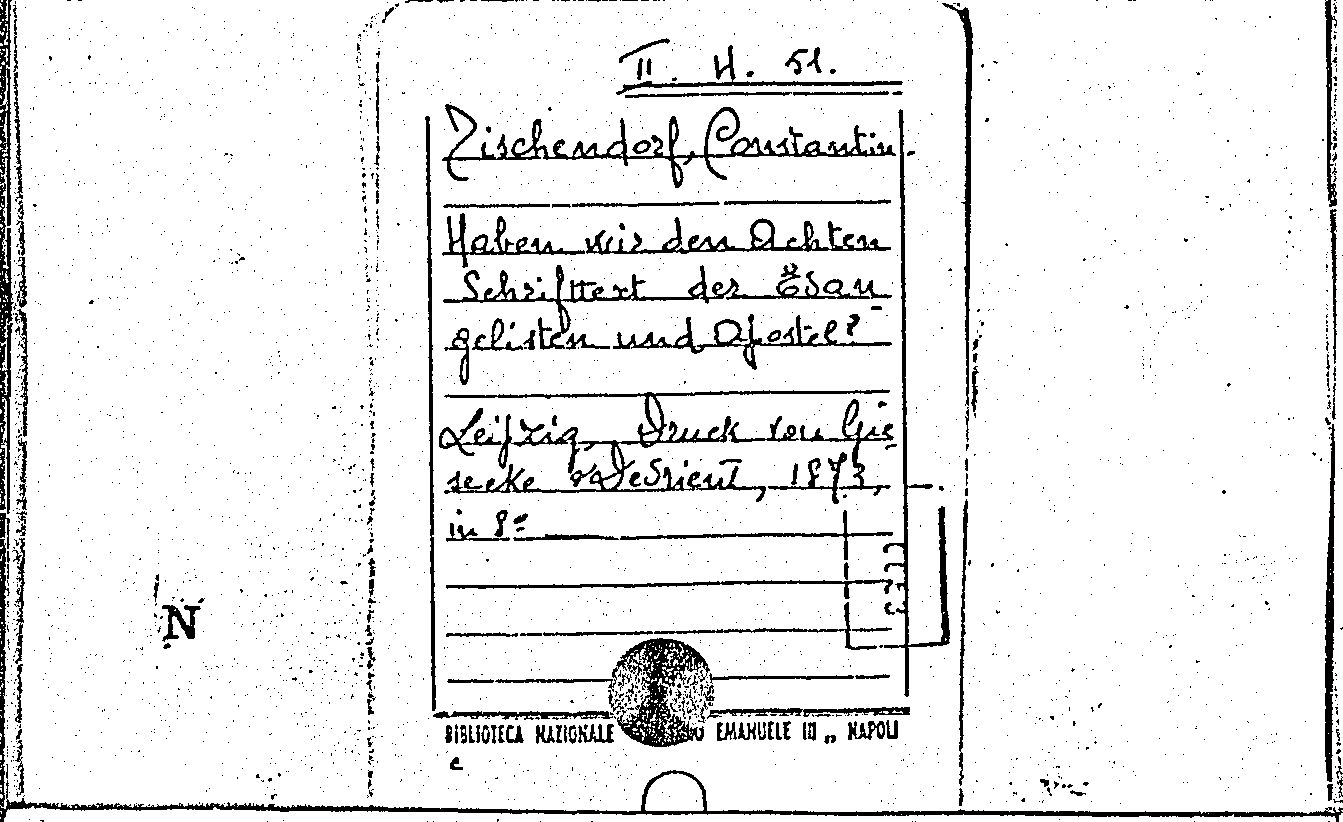 II. H. 51.
Tischendorf, Constantin.
Haben wir den Achten
Schrifttext der Evan-
gelisten und Apostel?
Leipzig, Druck von Gie-
secke & Devrient, 1873, —.
in 8º
N
BIBLIOTECA NAZIONALE EMANUELE III „ NAPOLI
c